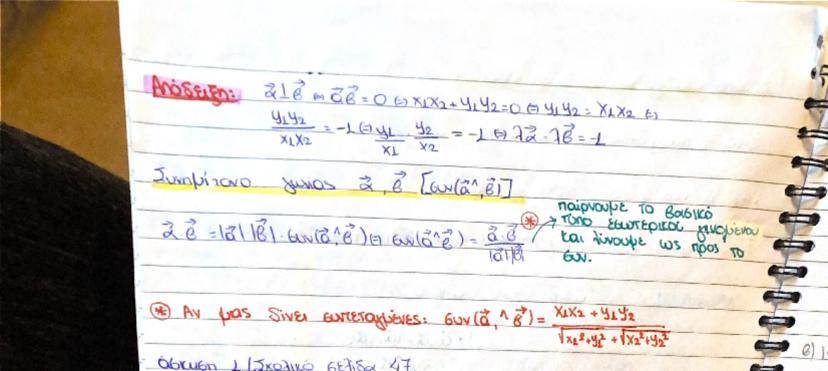 Απόδειξη: α⃗⊥β⃗ ⇔ α⃗β⃗=0 ⇔ x₁x₂+y₁y₂=0 ⇔ y₁y₂=x₁x₂ ⇔
y₁y₂/x₁x₂ = -1 ⇔ y₁/x₁ · y₂/x₂ = -1 ⇔ λα⃗ · λβ⃗ = -1
Συνημίτονο γωνίας α⃗, β⃗ [συν(α⃗^,β⃗)]
α⃗·β⃗ = |α⃗| |β⃗| · συν(α⃗^,β⃗) ⇔ συν(α⃗^β⃗) = α⃗·β⃗/|α⃗||β⃗|
* → παίρνουμε το βασικό
τύπο εσωτερικού γινομένου
και λύνουμε ως προς το
συν.
* Αν μας δίνει συντεταγμένες: συν(α⃗,^β⃗) = x₁x₂+y₁y₂/√x₁²+y₁² + √x₂²+y₂²
β)
άσκηση 1/Σχολικό σελίδα 47